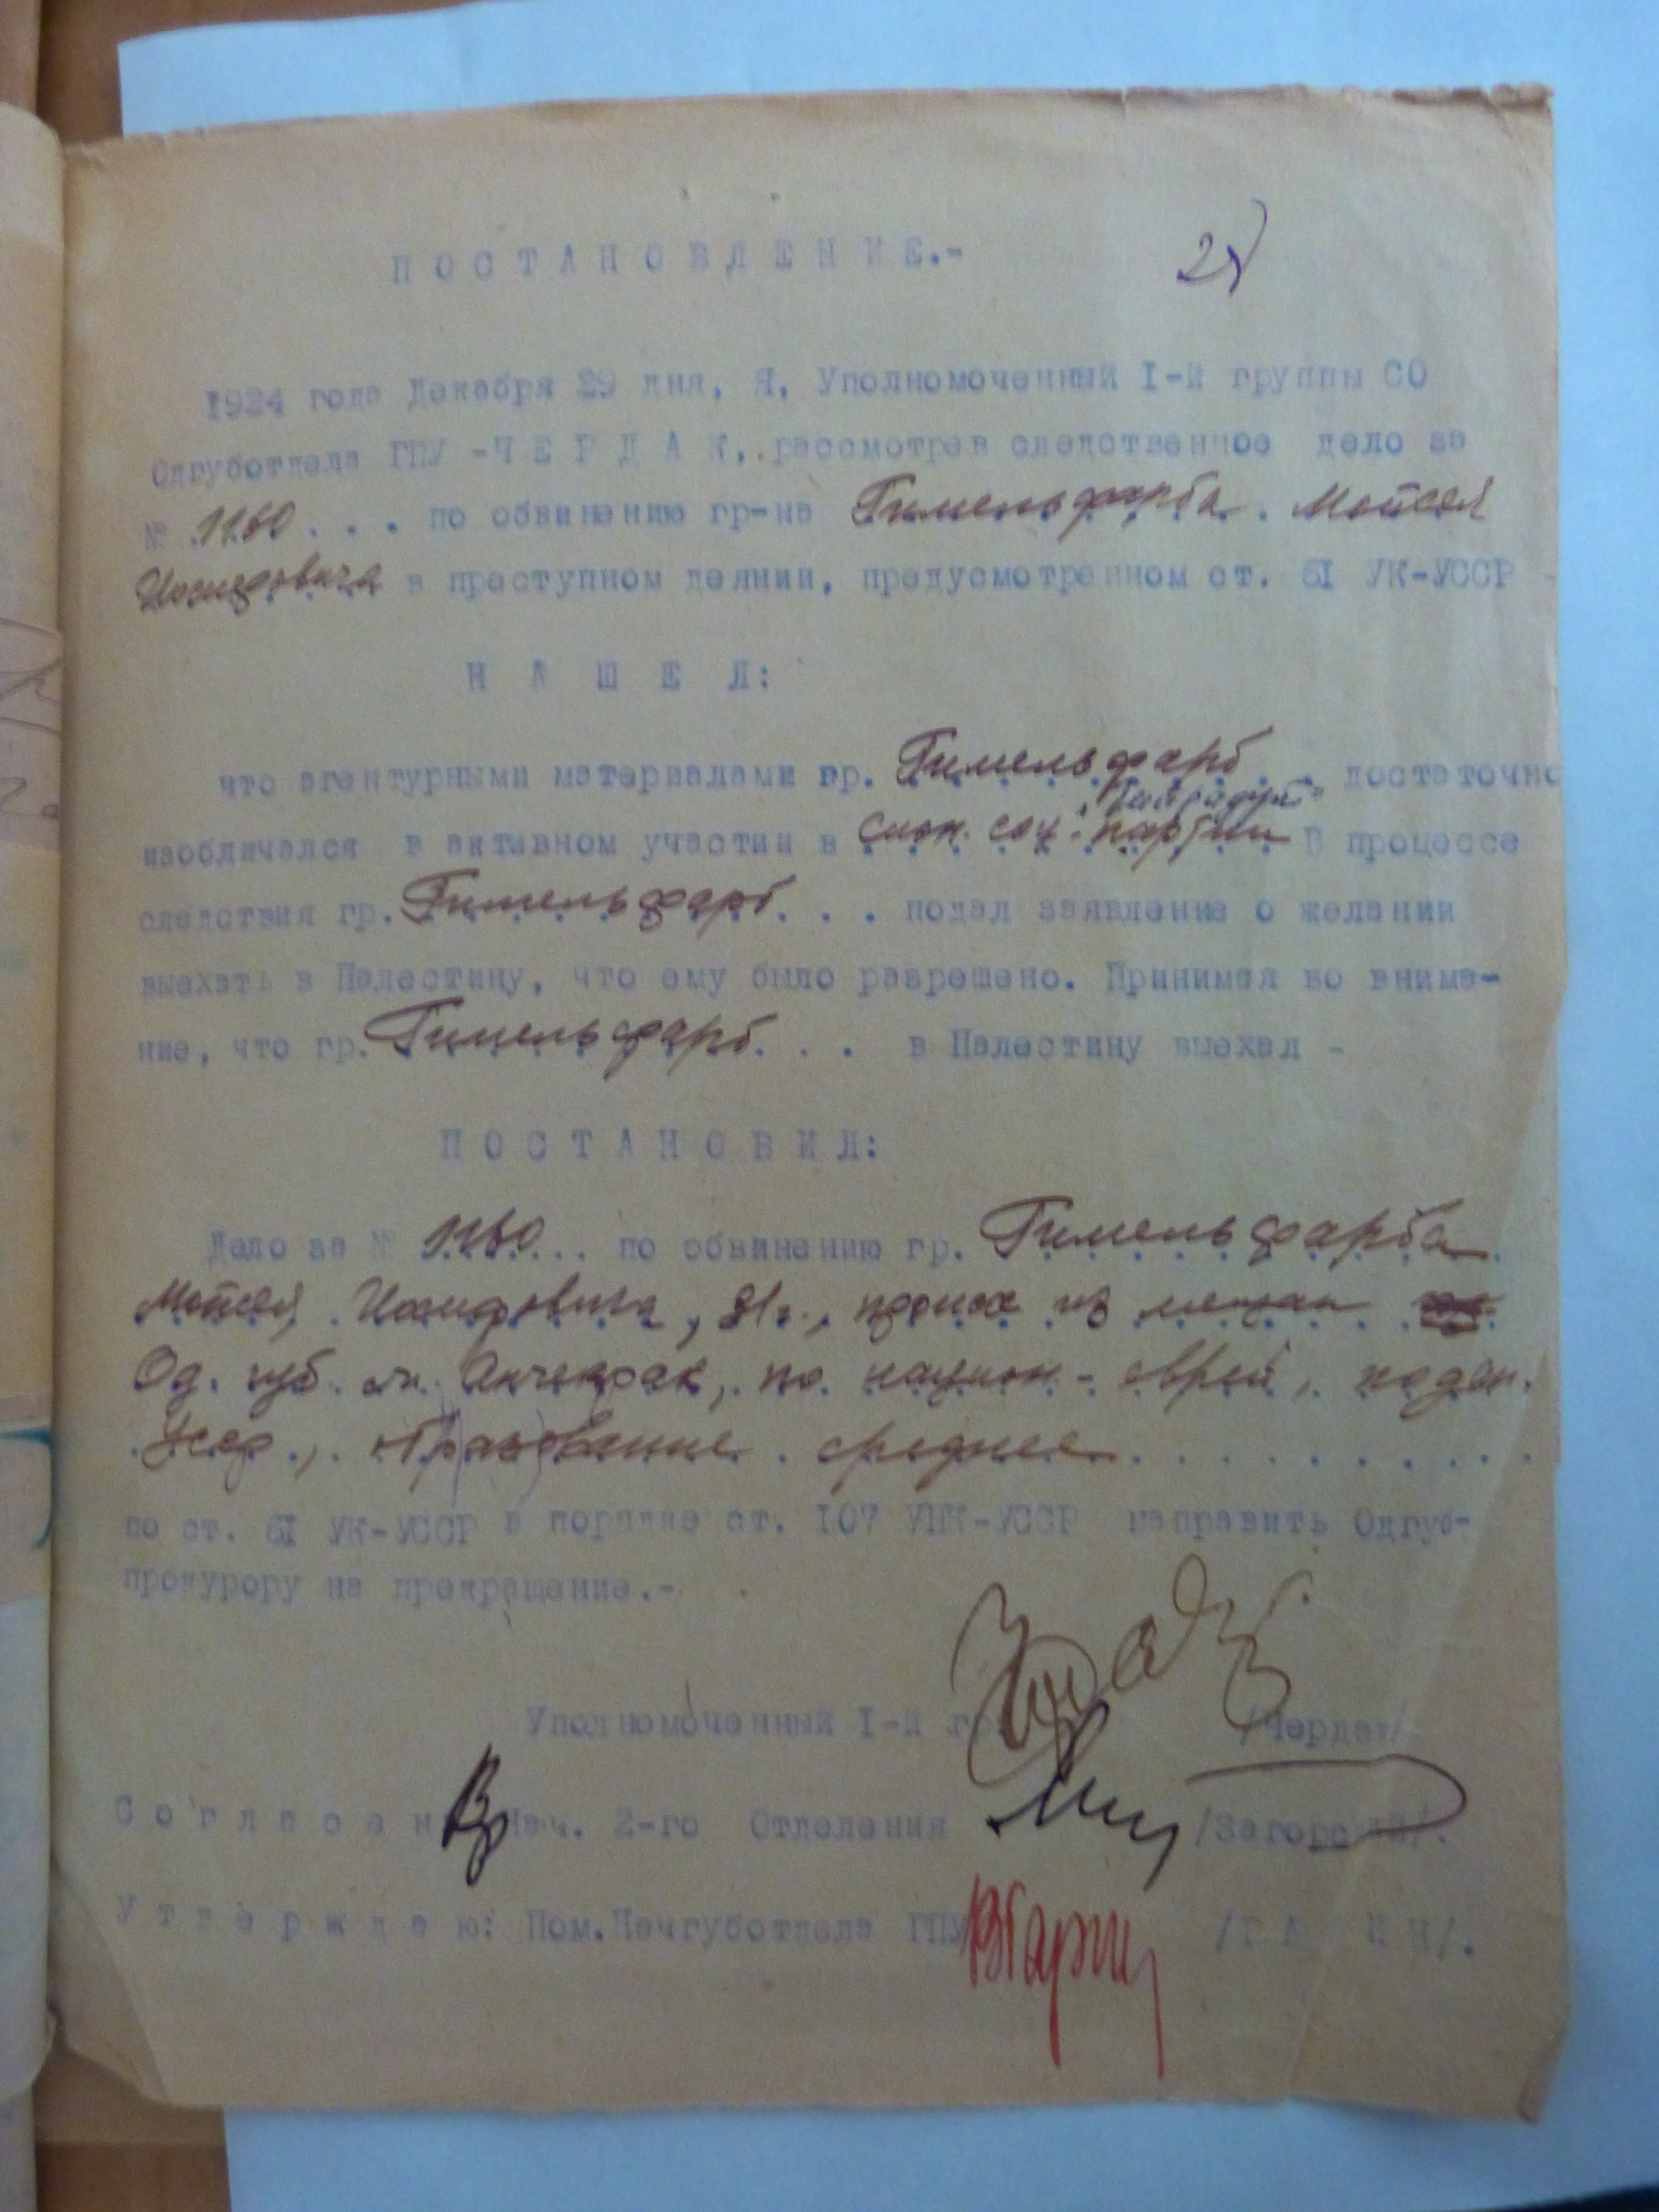 ПОСТАНОВЛЕНИЕ.-
1924 года Декабря 29 дня, Я, Уполномоченный I-й группы СО
Одгуботдела ГПУ -ЧЕРДАК, рассмотрев следственное дело за
№ 1160 . . . по обвинению гр-на Гимельфарба Мойсея
Иосифовича в преступном деянии, предусмотренном ст. 61 УК-УССР -
НАШЕЛ:
что агентурными материалами гр. Гимельфарб . . достаточно
изобличался в активном участии в Сион. соц. партии В процессе
следствия гр. Гимельфарб . . . подал заявление о желании
выехать в Палестину, что ему было разрешено. Принимая во внима-
ние, что гр. Гимельфарб . . . в Палестину выехал -
ПОСТАНОВИЛ:
Дело за № 1160 . . . по обвинению гр. Гимельфарба
Мойсея Иосифовича, 21г., происх из мещан
Од. губ. м. Анчекрак, по национ - еврей, поддан.
Усср., образование среднее
по ст. 61 УК-УССР в порядке ст. 107 УПК-УССР направить Одгуб-
прокурору на прекращение.-
Уполномоченный I-й гр /Чердак/
Согласен: Нач. 2-го Отделения /Загорский/.
Утверждаю: Пом.Начгуботдела ГПУ ВГарин /ГАРИН/.